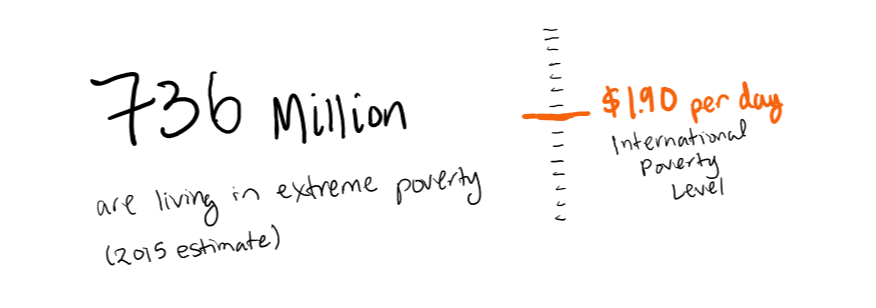 736 Million
are living in extreme poverty
(2015 estimate)
$1.90 per day
International
Poverty
Level